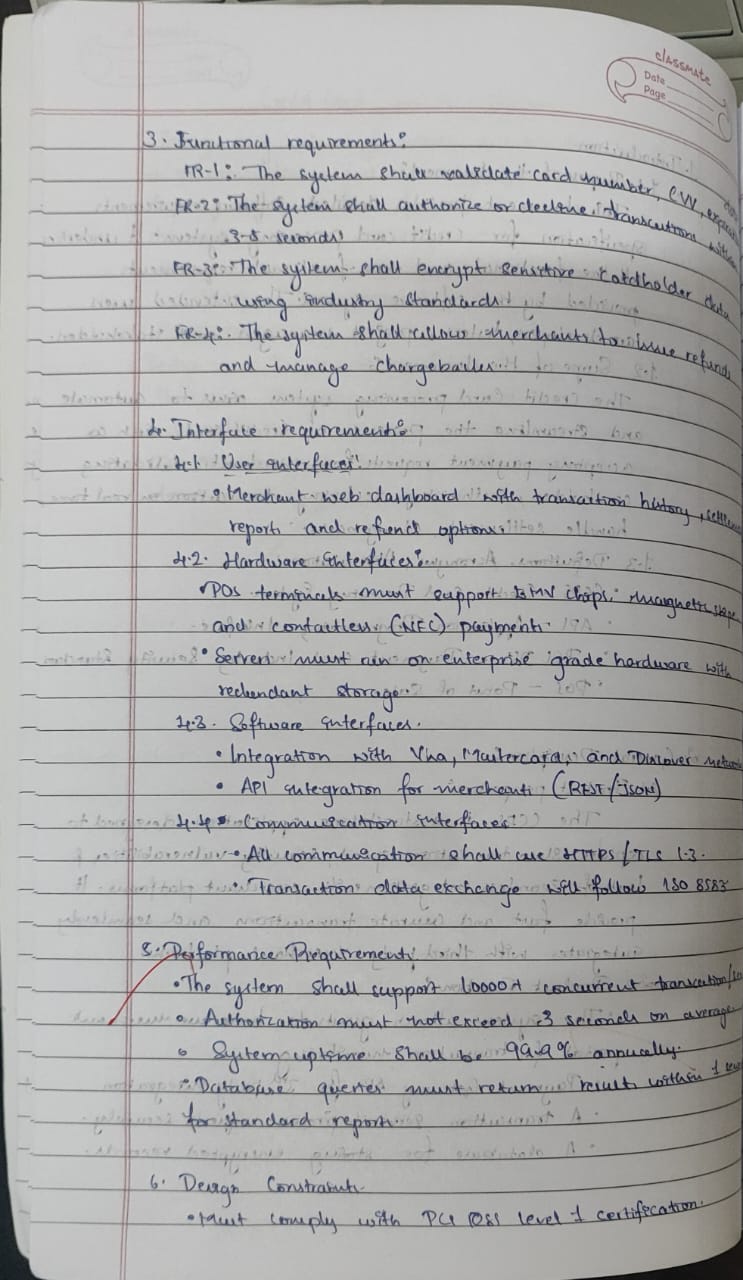 classmate
Date
Page
3. Functional requirements:
FR-1: The system shall validate card number, CVV,
FR-2: The system shall authorize or decline transactions within
3-5 seconds.
FR-3: The system shall encrypt sensitive cardholder data
using industry standards
FR-4: The system shall allow merchants to issue refunds
and manage chargebacks.
4. Interface requirements:
4.1 User interfaces:
• Merchant web dashboard with transaction history,
reports and refund options.
4.2. Hardware interfaces:
• POS terminals must support EMV chips, magnetic stripe
and contactless (NFC) payments.
• Servers must run on enterprise grade hardware with
redundant storage.
4.3. Software interfaces.
• Integration with Visa, Mastercard, and Discover networks
• API integration for merchants (REST/JSON)
4.4 Communication interfaces:
• All communication shall use HTTPS/TLS 1.3.
• Transaction data exchange will follow ISO 8583
5. Performance Requirements:
• The system shall support 10000+ concurrent transaction/sec
• Authorization must not exceed 3 seconds on average
• System uptime shall be 99.9% annually.
• Database queries must return results within 1
for standard reports.
6. Design Constraints.
• Must comply with PCI DSS level 1 certification.